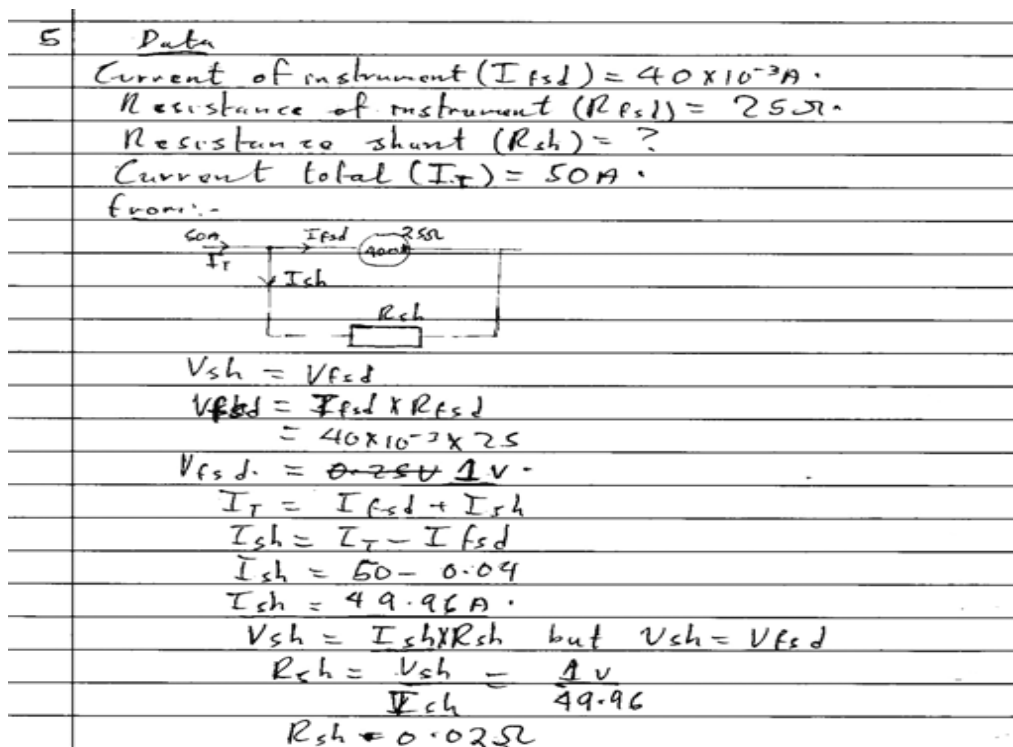 5 Data
Current of instrument (I fsd) = 40 x 10⁻³A.
Resistance of instrument (R fsd) = 25Ω.
Resistance shunt (Rsh) = ?
Current total (I_T) = 50A.
from:-
50A I_T Ifsd 25Ω
Ish
Rsh
Vsh = Vfsd
Vfsd = Ifsd x Rfsd
= 40x10⁻³ x 25
Vfsd. = 0.25V 1v.
I_T = Ifsd + Ish
Ish = I_T - I fsd
Ish = 50 - 0.04
Ish = 49.96A.
Vsh = IshxRsh but Vsh = Vfsd
Rsh = Vsh/Ish = 1v/49.96
Rsh = 0.02Ω